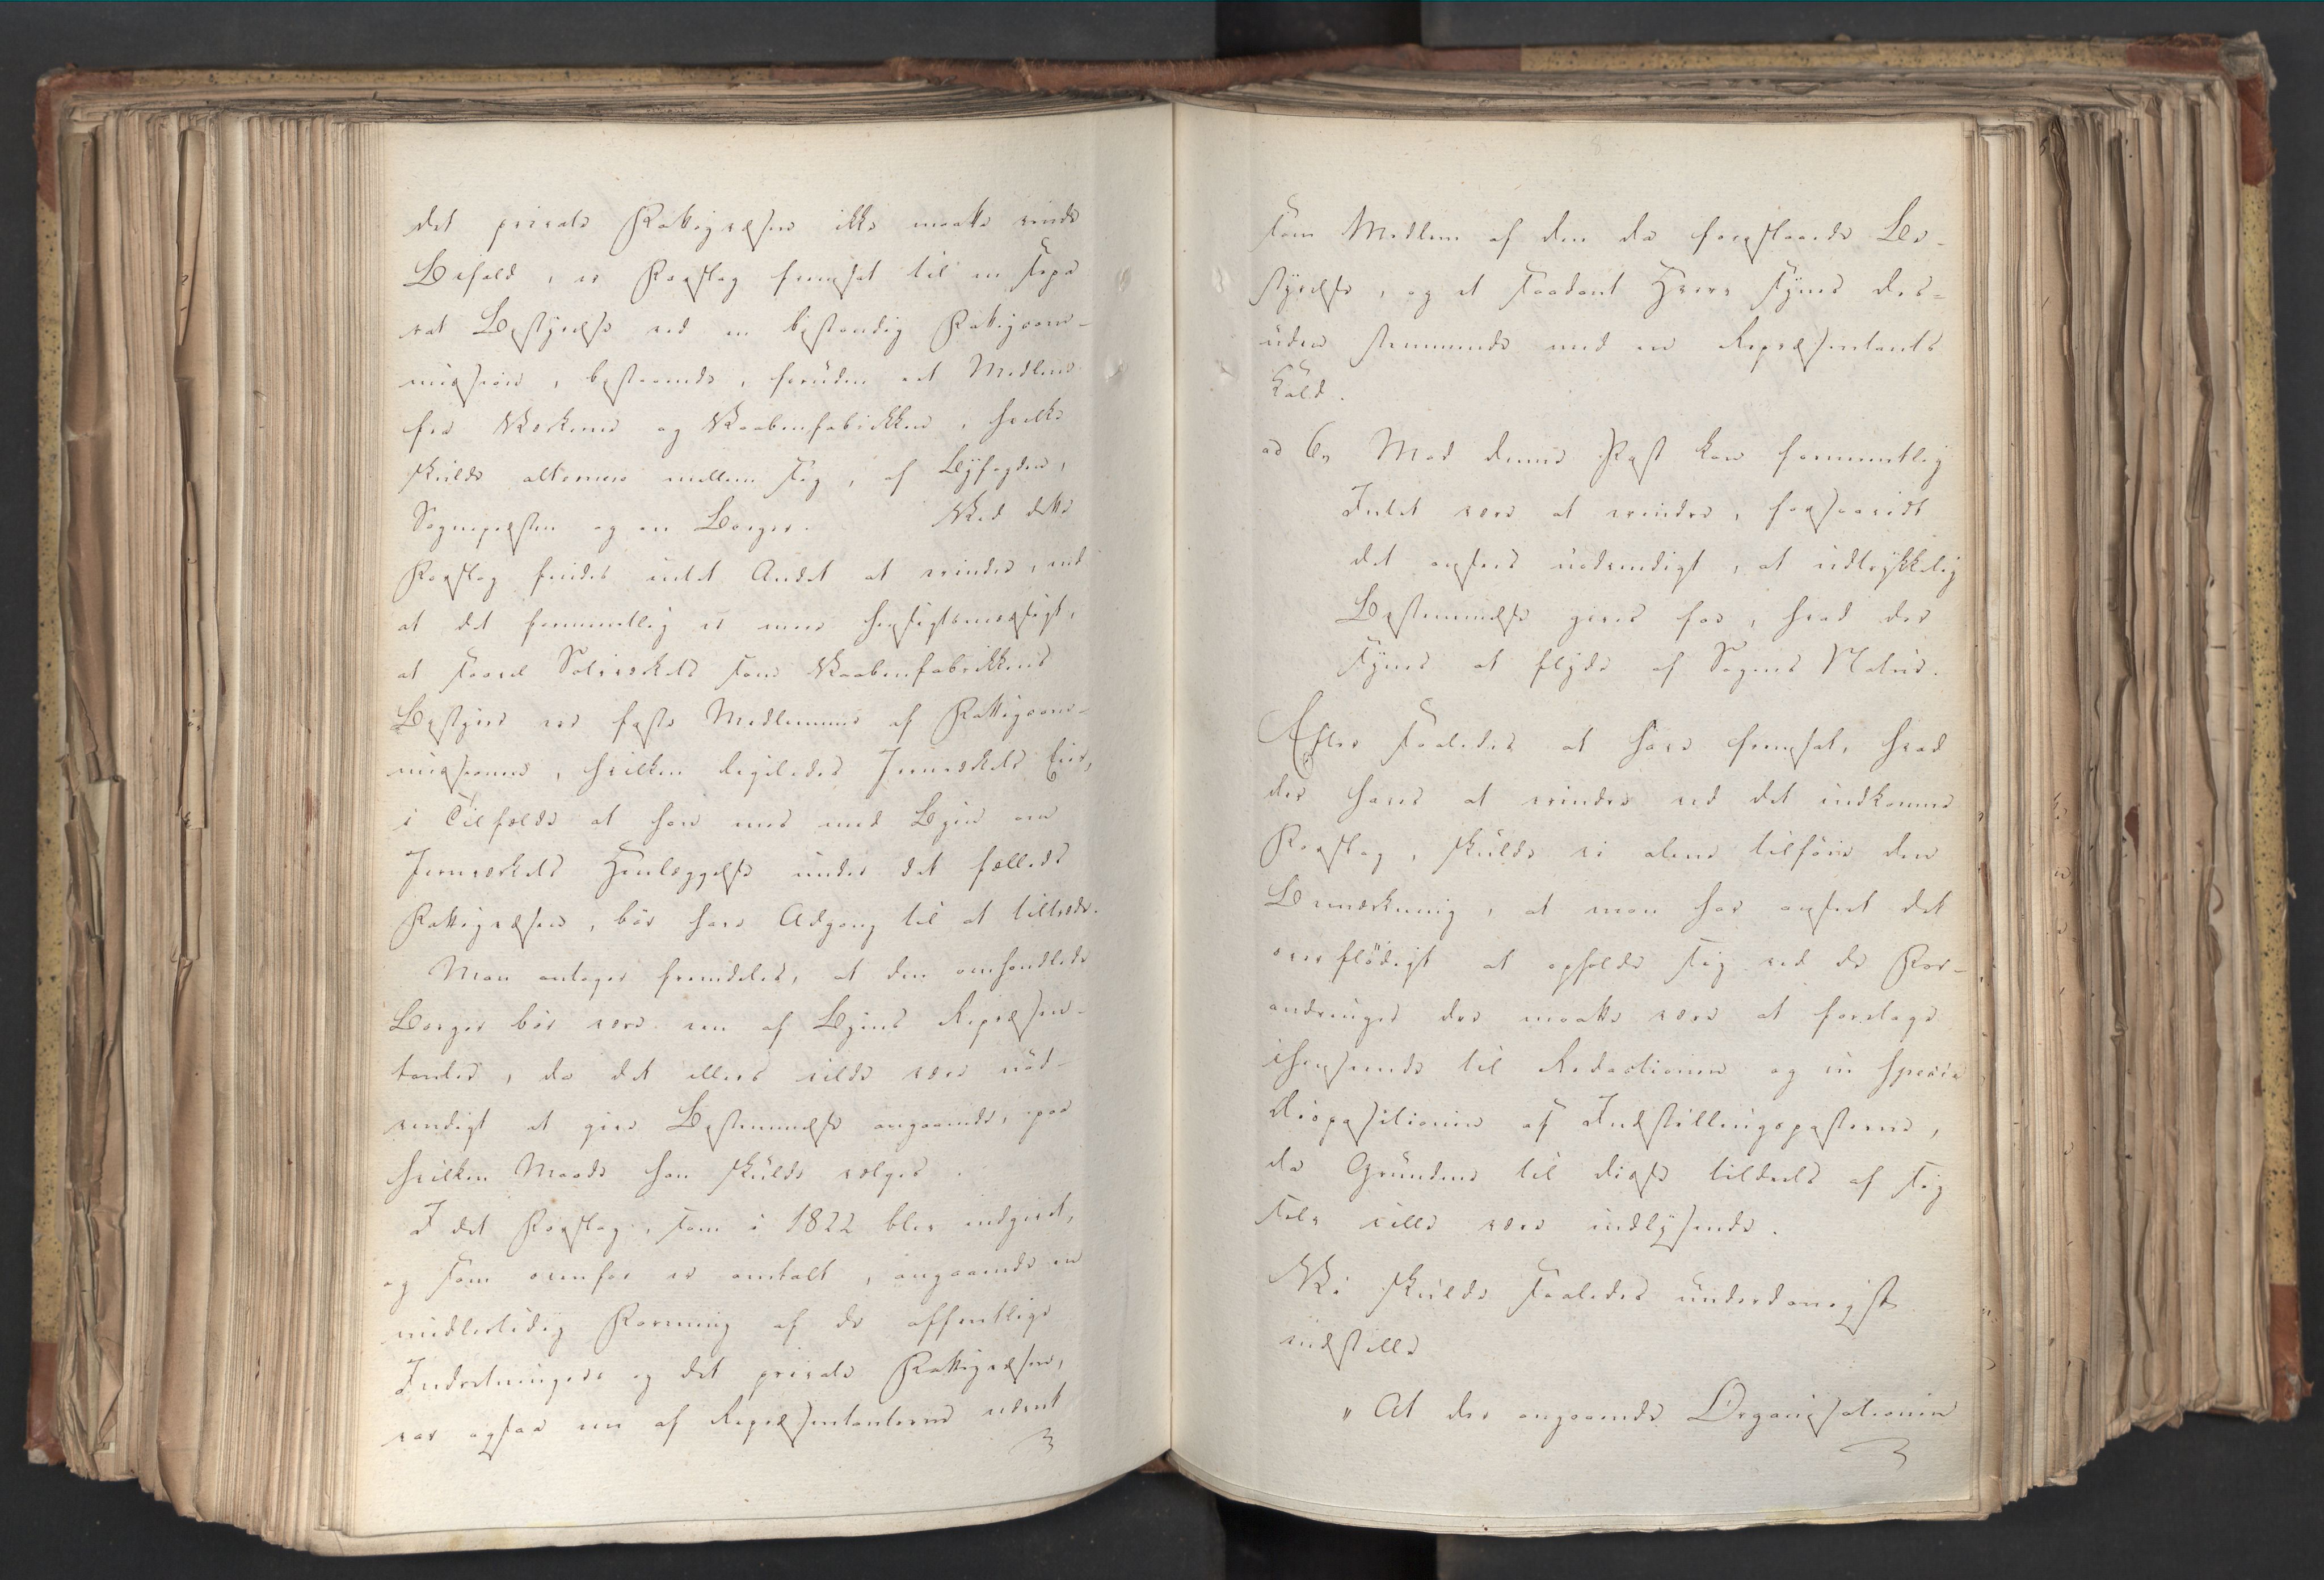 det private Fattigvæsen ikke maatte vinde
Bifald, er Forslag fremsat til en sepa
rat Bestyrelse ved en bestandig Fattigcom-
mission, bestaaende, foruden et Medlem
fra Værkerne og Vaabenfabrikken, hvilke
skulde alternere mellem sig, af Byfogden,
Sognepræsten og en Borger. Ved dette
Forslag findes intet Andet at erindre, end
at det formeentlig er meer hensigtsmæssigt,
at saavel Sølvværkets som Vaabenfabrikkens
Bestyrer ere faste Medlemmer af Fattigcom-
missionen, hvilken ligeledes Jernværkets Eier,
i Tilfælde at han var med Byen om
Jernværkets Henlæggelse under det fælleds
Fattigvæsen, bör have Adgang til at tiltræde.
Man antager fremdeles, at den omhandlede
Borger bör være een af Byens Repræsen-
tanter, da det ellers vilde være nöd-
vendigt at give Bestemmelse angaaende, paa
hvilken Maade han skulde vælges.
I det Forslag, som i 1822 blev indgivet,
og som ovenfor er omtalt, angaaende en
midlertidig Forening af de offentlige
Indretninger og det private Fattigvæsen,
var ogsaa een af Repræsentanterne nævnt
som Medlem af den da foreslaaede Be-
styrelse, og et saadant Hverv synes des-
uden stemmende med en Repræsentants
Kald.
ad 6, Mod denne Post kan formeentlig
Intet være at erindre, forsaavidt
det ansees nödvendigt, at udtrykkelig
Bestemmelse gives for, hvad der
synes at flyde af Sagens Natur.
Efter saaledes at have fremsat, hvad
der haves at erindre ved det indkomne
Forslag, skulde vi alene tilföie den
Bemærkning, at man har anseet det
overflödigt at opholde sig ved de For-
andringer der maatte være at foretage
ihenseende til Redactionen og in specie
Dispositionen af Indstillingsposterne,
da Grundene til disse tildeels af sig
selv ville være indlysende.
Vi skulde saaledes underdanigst
indstille
" At der angaaende Organisationen